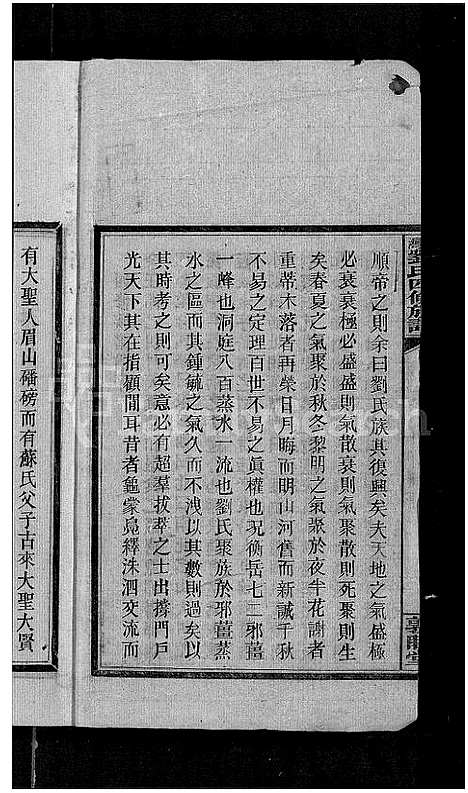 劉氏四修族譜
順帝之則余曰劉氏族其復興矣夫天地之氣盛極
必衰衰極必盛盛則氣散衰則氣聚散則死聚則生
矣春夏之氣聚於秋冬黎明之氣聚於夜半花謝者
重蒂木落者再榮日月晦而明山河舊而新誠千秋
不易之定理百世不易之眞權也況衡岳七二邪薑
一峰也洞庭八百蒸水一流也劉氏聚族於邪薑蒸
水之區而其鍾毓之氣久而不洩以其數則過矣以
其時考之則可矣意必有超羣拔萃之士出撐門戶
光天下其在指顧間耳昔者龜蒙鳧繹洙泗交流而
有大聖人眉山磻磅而有蘇氏父子古來大聖大賢